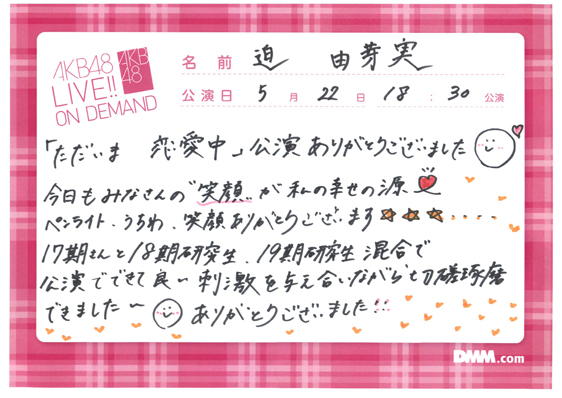 AKB48
LIVE!!
ON DEMAND
AKB
48
名前 迫 由芽実
公演日 5月22日 18:30公演
「ただいま 恋愛中」公演ありがとうございました
今日もみなさんの"笑顔"が私の幸せの源
ペンライト、うちわ、笑顔ありがとうございます☆☆☆・・・・
17期さんと18期研究生、19期研究生混合で
公演でできて良い刺激を与え合いながら切磋琢磨
できました〜 ありがとうございました!!
DMM.com